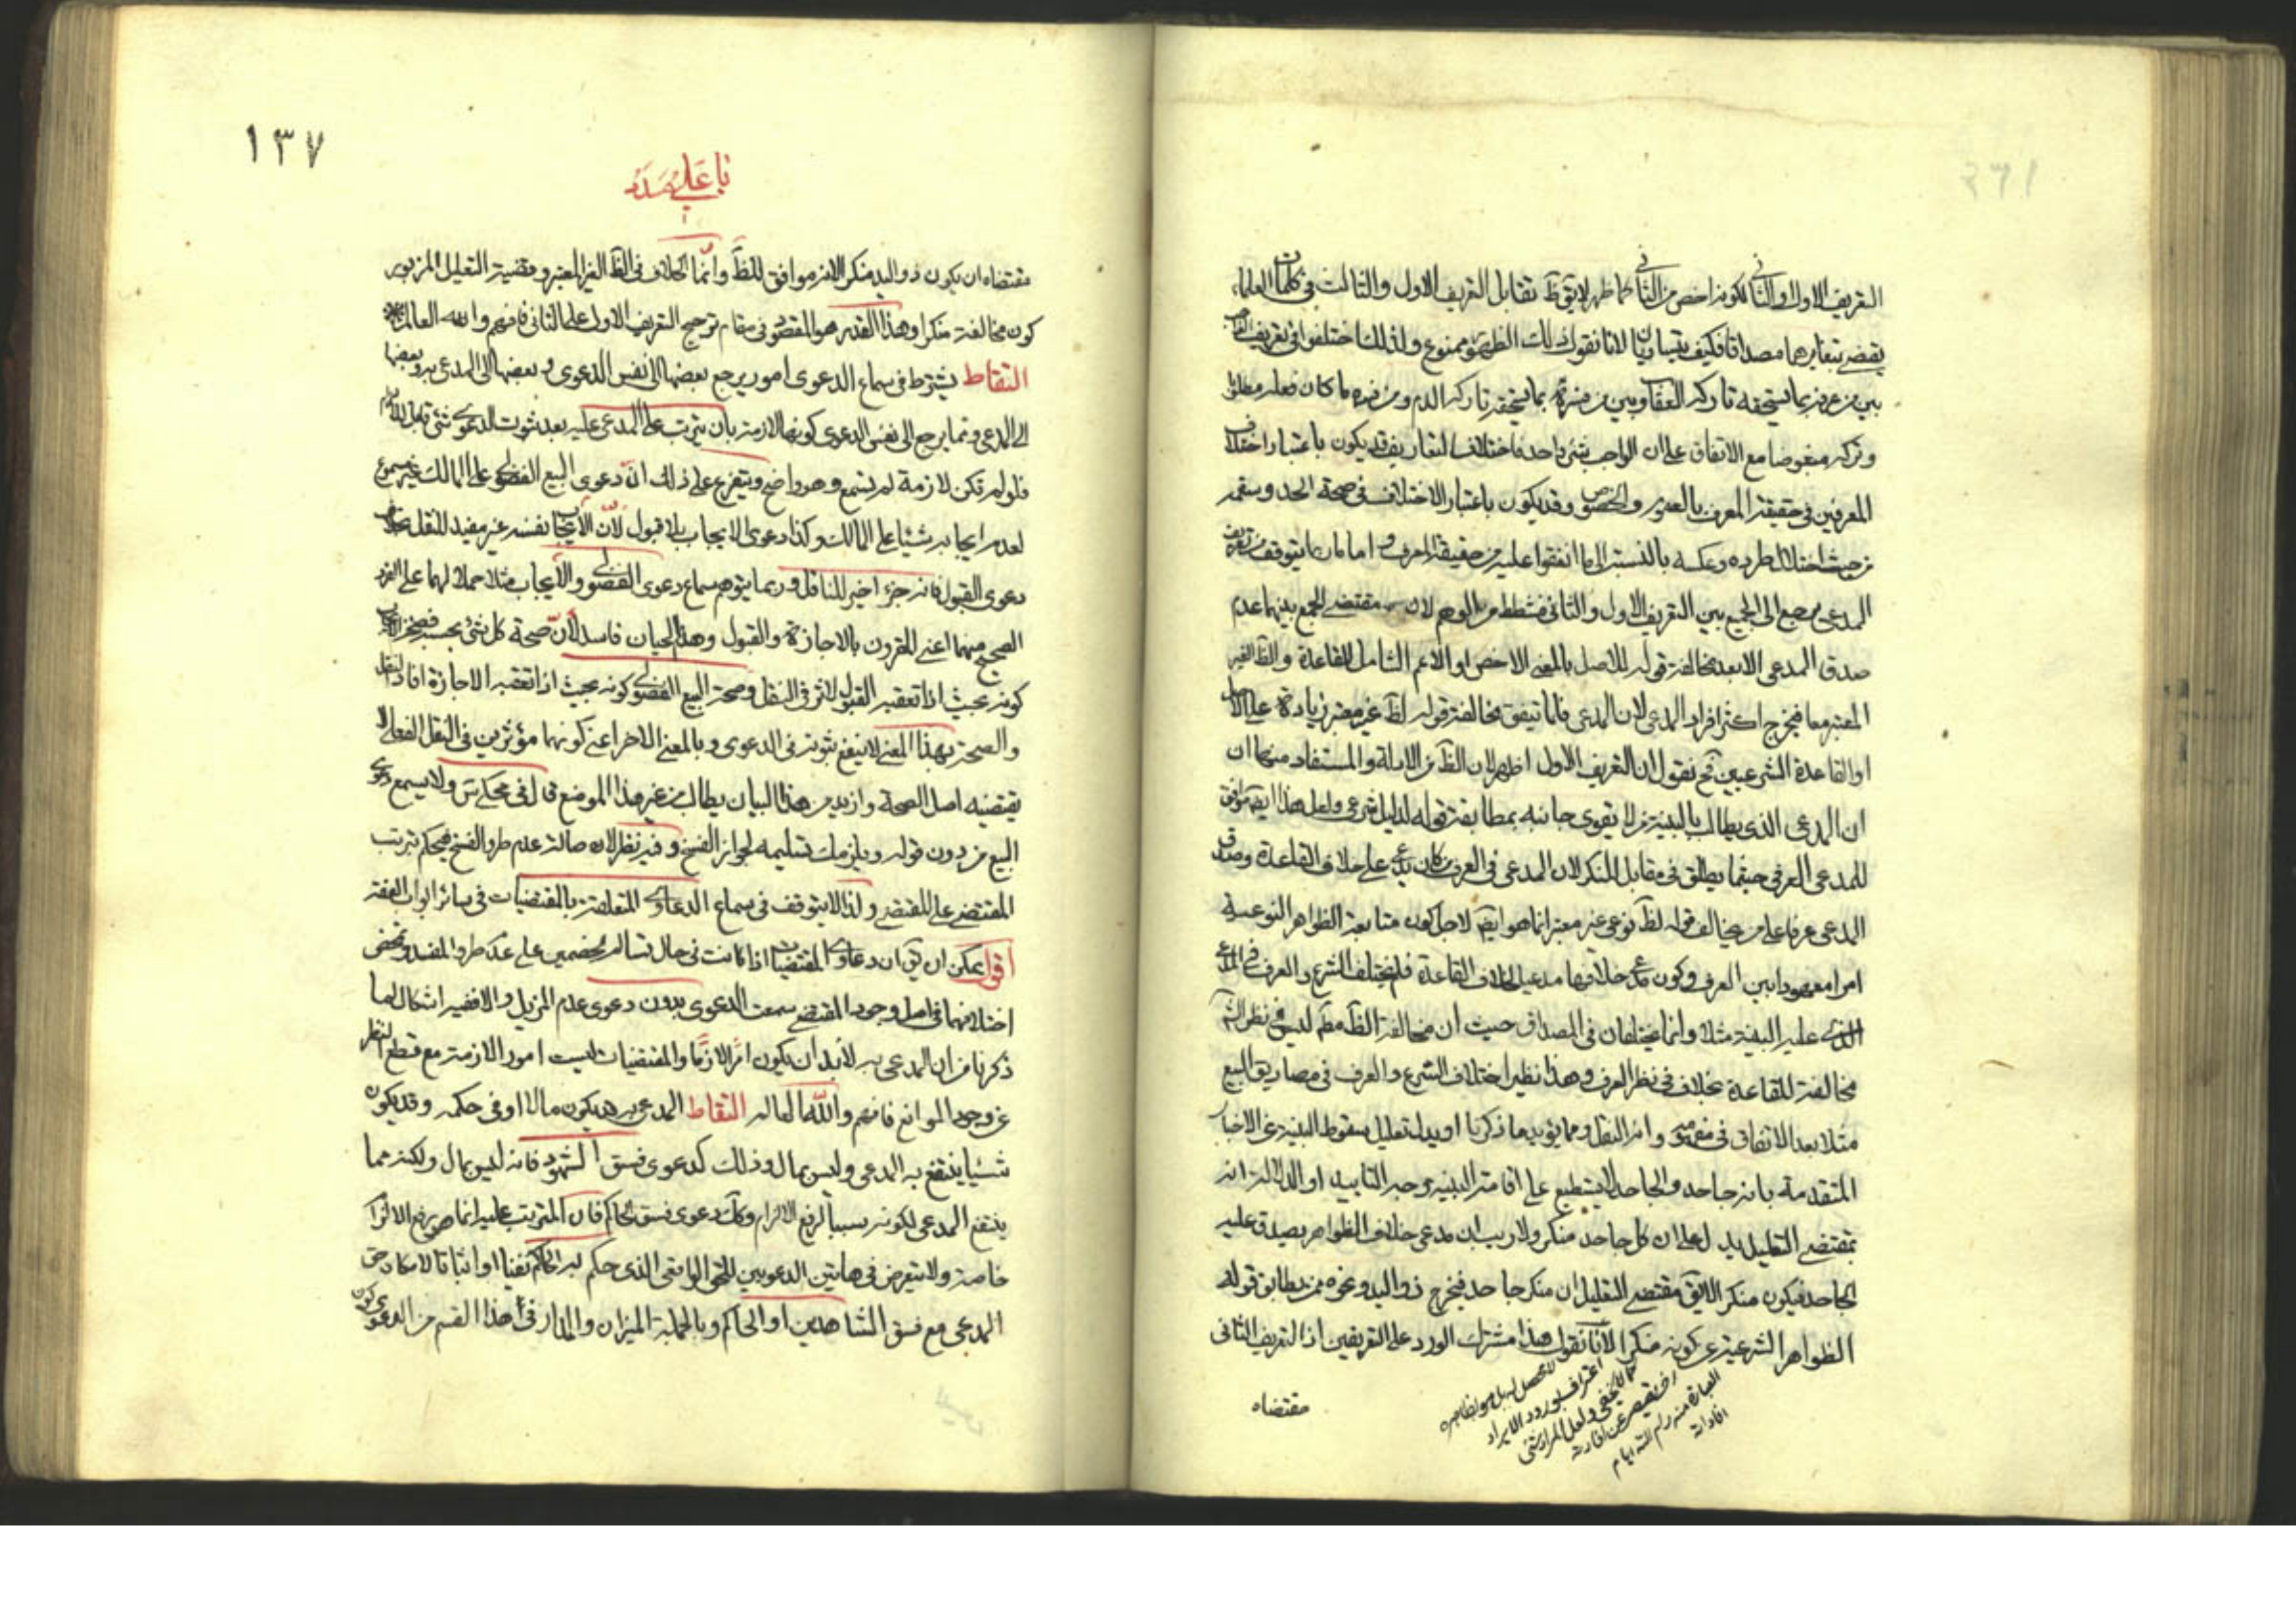 التعريف الاول والثاني لكونه اخص من الثاني كما ظهر لا يق ظ تقابل التعريف الاول والثالث في كلمات العلماء
يقضي بتغايرهما مصداقا فكيف يتساويان لانا نقول ذلك الظهور ممنوع ولذلك اختلفوا في تعريف الواجب
بين من عرفه بما يستحق تاركه العقاب وبين من فسره بما يستحق تاركه الذم ومن فسره ما كان فعله مطلوبا
وتركه مبغوضا مع الاتفاق على ان الواجب شئ واحد فاختلاف التعاريف قد يكون باعتبار اختلاف
المعرفين في حقيقة المعرف بالعموم والخصوص وقد يكون باعتبار الاختلاف في صحة الحد وسقمه
من حيث اختلال طرده وعكسه بالنسبة الى ما اتفقوا عليه من حقيقة المعرف واما ما يتوقف من تعريف
المدعي مرجع الى الجمع بين التعريف الاول والثاني فشطط من الوهم لان مقتضى الجمع بينهما عدم
صدق المدعي الا بعد مخالفة قوله للاصل بالمعنى الاخص او الاعم الشامل للقاعدة والظ الغير
المعتبر معا فيخرج اكثر افراد المدعي لان المدعي قلما تيفق مخالفة قوله لظ غير معتبر زيادة على الاصل
او القاعدة الشرعيين نعم نقول ان التعريف الاول اظهر لان الظ من الادلة والمستفاد منها ان
ان المدعي الذي يطالب بالبينة من لا يقوى جانبه بمطابقة قوله لدليل شرعي ولعل هذا ايض موافق
للمدعي العرفي حيثما يطلق في مقابل المنكر لان المدعي في العرف من كان يدعي على خلاف القاعدة وصدق
المدعي عرفا على من يخالف قوله لظ نوعي غير معتبر انما هو ايض لاجل كون متابعة الظواهر النوعية
امرا معهودا بين العرف وكون مدعي خلافها مدعيا لخلاف القاعدة فلم يختلف الشرع والعرف في المدعي
الذي عليه البينة مثلا وانما يختلفان في المصداق حيث ان مخالفة الظ مط ليس في نظر الش
مخالفة للقاعدة بخلاف في نظر العرف وهذا نظير اختلاف الشرع والعرف في مصاديق البيع
مثلا بعد الاتفاق في مفهومه وانه النقل ومما يؤيد ما ذكرنا او يدل تعليل سقوط البينة عن في الاخبار
المتقدمة بانه جاحد والجاحد لا يستطيع على اقامة البينة وجه التاييد او الدلالة انه
بمقتضى التعليل يدل على ان كل جاحد منكر ولا ريب ان مدعي خلاف الظواهر يصدق عليه
الجاحد فيكون منكرا لا يق مقتضى التعليل ان منكر جاحد فيخرج ذو اليد ونحوه ممن يطابق قوله
الظواهر الشرعية عن كونه منكرا لانا نقول هذا مشترك الورود على التعريفين اذ التعريف الثاني
مقتضاه
اعتراف بورود الايراد
١٣٧
مقتضاه ان يكون ذو اليد منكرا لانه موافق للظ وانما الخلاف في الظ الغير المعتبر وقضية التعليل المزبور
كون مخالفة منكرا وهذا القدر هو المقصود في مقام ترجيح التعريف الاول على الثاني فافهم والله العالم
التقاط يشترط في سماع الدعوى امور يرجع بعضها الى نفس الدعوى وبعضها الى المدعى به وبعضها
الى المدعي ومما يرجع الى نفس الدعوى كونها لازمة بان يترتب على المدعى عليه بعد ثبوت الدعوى شئ
فلو لم تكن لازمة لم يستمع وهو واضح ويتفرع على ذلك انّ دعوى البيع الفضولي على المالك غير مسموع
لعدم ايجابه شيئا على المالك وكذا دعوى الايجاب بلا قبول لانّ الايجاب بنفسه غير مفيد للنقل بخلاف
دعوى القبول فانه جزء اخير للناقل وربما يتوهم سماع دعوى الفضولي والايجاب مثلا حملا لهما على الفرد
الصحيح منهما اعني المقرون بالاجازة والقبول وهذا الحيان فاسد لانّ صحة كل شئ بحسبه فصحة الايجاب
كونه بحيث اذا تعقبه القبول لاثر في النقل وصحة البيع الفضولي كونه بحيث اذا تعقبه الاجازة افاد النقل
والصحة بهذا المعنى لا ينفع ثبوته في الدعوى وبالمعنى الاخر اعني كونهما مؤثرين في النقل الفعلي لا
يقتضيه اصل الصحة وازيد من هذا البيان يطالب من غير هذا الموضع قال في محكي س ولا يسمع دعوى
البيع من دون قوله ويلزمك تسليمه لجواز الفسخ وفيه نظر لان اصالة عدم طرو الفسخ فيحكم بترتب
المقتضى على المقتضي ولذا لا يتوقف في سماع الدعاوى المتعلقة بالمقتضيات في سائر ابواب الفقه
اقول يمكن ان يق ان دعاوى المقتضيات اذا كانت في حال تسالم الخصمين على عدم طرو المفسد وتمحض
اختلافهما في اصل وجود المقتضي سمعت الدعوى بدون دعوى عدم المزيل والا ففيه اشكال لما
ذكرنا من ان المدعى به لابد ان يكون امرا لازما والمقتضيات ليست امورا لازمة مع قطع النظر
عن وجود الموانع فافهم والله العالم التقاط المدعى به قد يكون مالا او في حكمه وقد يكون
شيئا ينتفع به المدعي وليس بمال وذلك كدعوى فسق الشهود فانه ليس بمال ولكنه مما
ينتفع المدعي لكونه سببا لرفع الالزام وكك دعوى فسق الحاكم فان المترتب عليه انما هو رفع الالزام
خاصة ولا يتعرض في هاتين الدعويين للحق الواقعي الذي حكم به الحاكم نفيا او اثباتا لامكان حق
المدعي مع فسق الشاهدين او الحاكم وبالجملة الميزان والمدار في هذا القسم من الدعوى كون